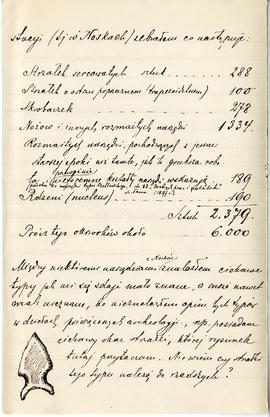 Stacyi (tj w Noskach) zebrałem co następuje:
Strzałek sercowatych sztuk — 288
Strzałek o ostrzu poprzecznem — 100
Skrobaczek — 278
Nożów i innych rozmaitych narzędzi 1334
Rozmaitych narzędzi pochodzących z
starszej epoki
kształty narzędzi wskazują 189
Rdzeni (nucleus) — 190
Sztuk 2.379.
Prócz tego okrzosków około 6.000
Między niektóremi narzędziami znalazłem ciekawe
typy jak mi się zdaje mało znane, a może nawet
wcale nieznane, bo nieznalazłem opisu tych typów
w dziełach poświęconych archeologii, np. posiadam
ciekawy okaz strzałki, której rysunek
tutaj przytaczam. Nie wiem czy strzałki
tego typu należą do rzadszych?